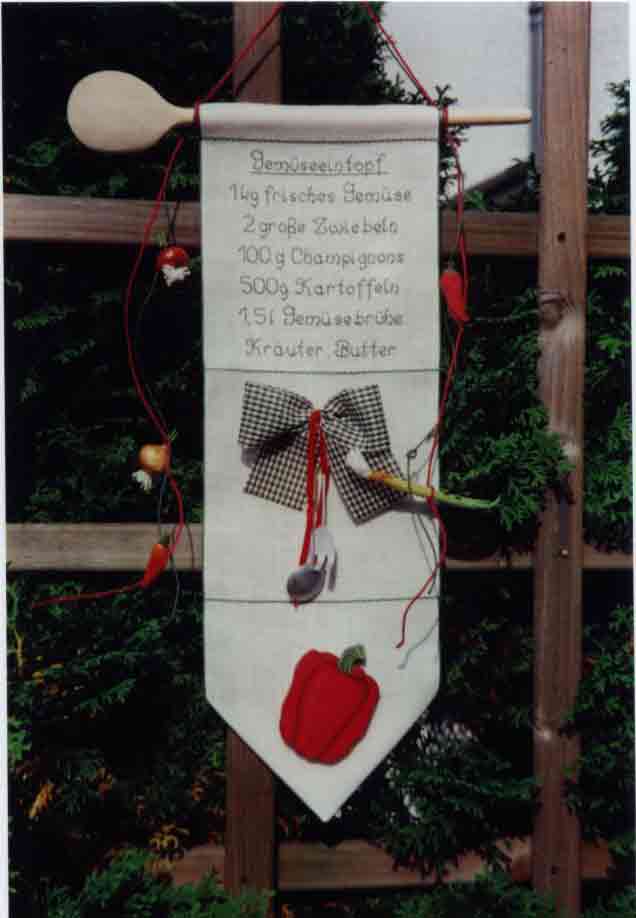 Gemüseeintopf
1kg frisches Gemüse
2 große Zwiebeln
100g Champignons
500g Kartoffeln
1,5l Gemüsebrühe
Kräuter, Butter